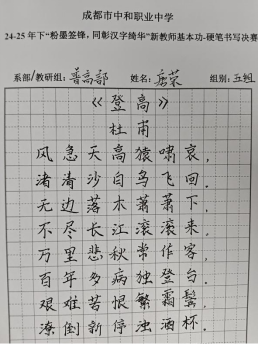 成都市中和职业中学
24-25年下“粉墨签锋，同彰汉字绮华”新教师基本功-硬笔书写决赛
系部/教研组：普高部 姓名：荣 组别：五组
《登高》
杜甫
风急天高猿啸哀，
渚清沙白鸟飞回。
无边落木萧萧下，
不尽长江滚滚来。
万里悲秋常作客，
百年多病独登台。
艰难苦恨繁霜鬓，
潦倒新停浊酒杯。